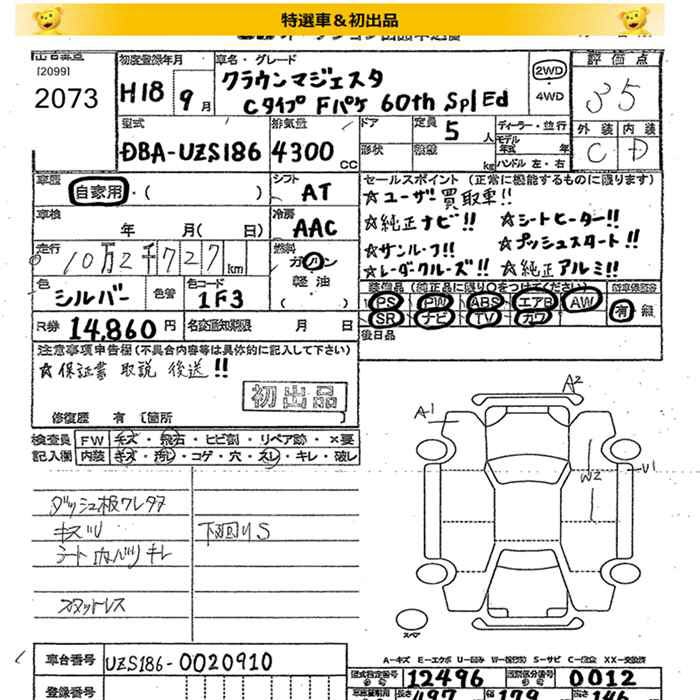 特選車＆初出品
[2099]
2073
初度登録年月
H18 9月
車名・グレード
クラウンマジェスタ
Cタイプ Fパケ 60th Spl Ed
2WD
4WD
評価点
35
外装 内装
C D
型式
DBA-UZS186
排気量
4300 CC
ドア
形状
定員 5 人
kg
ディーラー・並行
モデル年式 年
ハンドル 左・右
車歴
自家用・( )
シフト
AT
車検
年 月( 日)
冷房
AAC
走行
10万2千727 km
燃料
ガソリン
軽油
色
シルバー
色替
色コード
1F3
R券 14,860 円
名変通知期限 月 日
セールスポイント (正常に機能するものに限ります)
☆ユーザー買取車!!
☆純正ナビ!! ☆シートヒーター!!
☆サンルーフ!! ☆プッシュスタート!!
☆レーダークルーズ!! ☆純正アルミ!!
装備品 (純正品に限り○をつけてください)
PS PW ABS エアB AW
SR ナビ TV カワ
有 無
後日品
注意事項申告欄 (不具合内容等は具体的に記入して下さい)
☆保証書 取説 後送!!
初出品
修復歴 有 〔箇所 〕
検査員記入欄
FW キズ・飛石・ヒビ割・リペア跡・×要
内装 キズ・汚レ・コゲ・穴・スレ・キレ・破レ
ダッシュ板ワレタワ
キズソ
シート カバーソ キレ
下回りS
スタットレス
A2
A1
W2
U1
スペア
A-キズ E-エクボ U-凹み W-補修跡 S-サビ C-腐食 XX-交換済
車台番号 UZS186-0020910
型式指定番号 12496
類別区分番号 0012
登録番号
長さ 497
幅 179
高さ 146